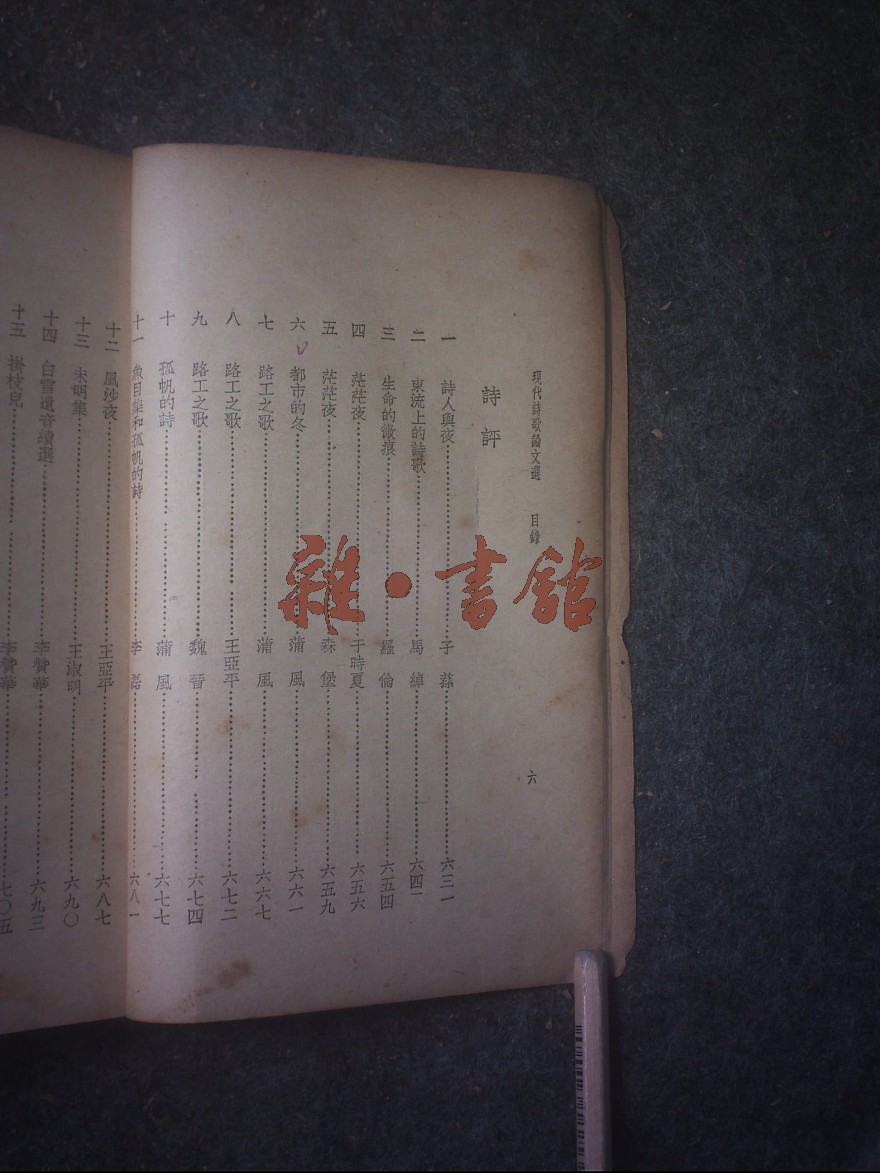 現代詩歌論文選 目錄 六
詩評
一 詩人與夜 子蓀 六三一
二 東流上的詩歌 馬綽 六四二
三 生命的微痕 羅倫 六五四
四 茫茫夜 于時夏 六五六
五 茫茫夜 森堡 六五九
六 都市的冬 蒲風 六六一
七 路工之歌 蒲風 六六七
八 路工之歌 王亞平 六七二
九 路工之歌 魏晉 六七四
十 孤帆的詩 蒲風 六七七
十一 魚目集和孤帆的詩 李磊 六八一
十二 風沙夜 王亞平 六八七
十三 未明集 王淑明 六九〇
十四 白雪遺音續選 李贊華 六九三
十五 掛枝兒 李贊華 七〇五
雜·書館